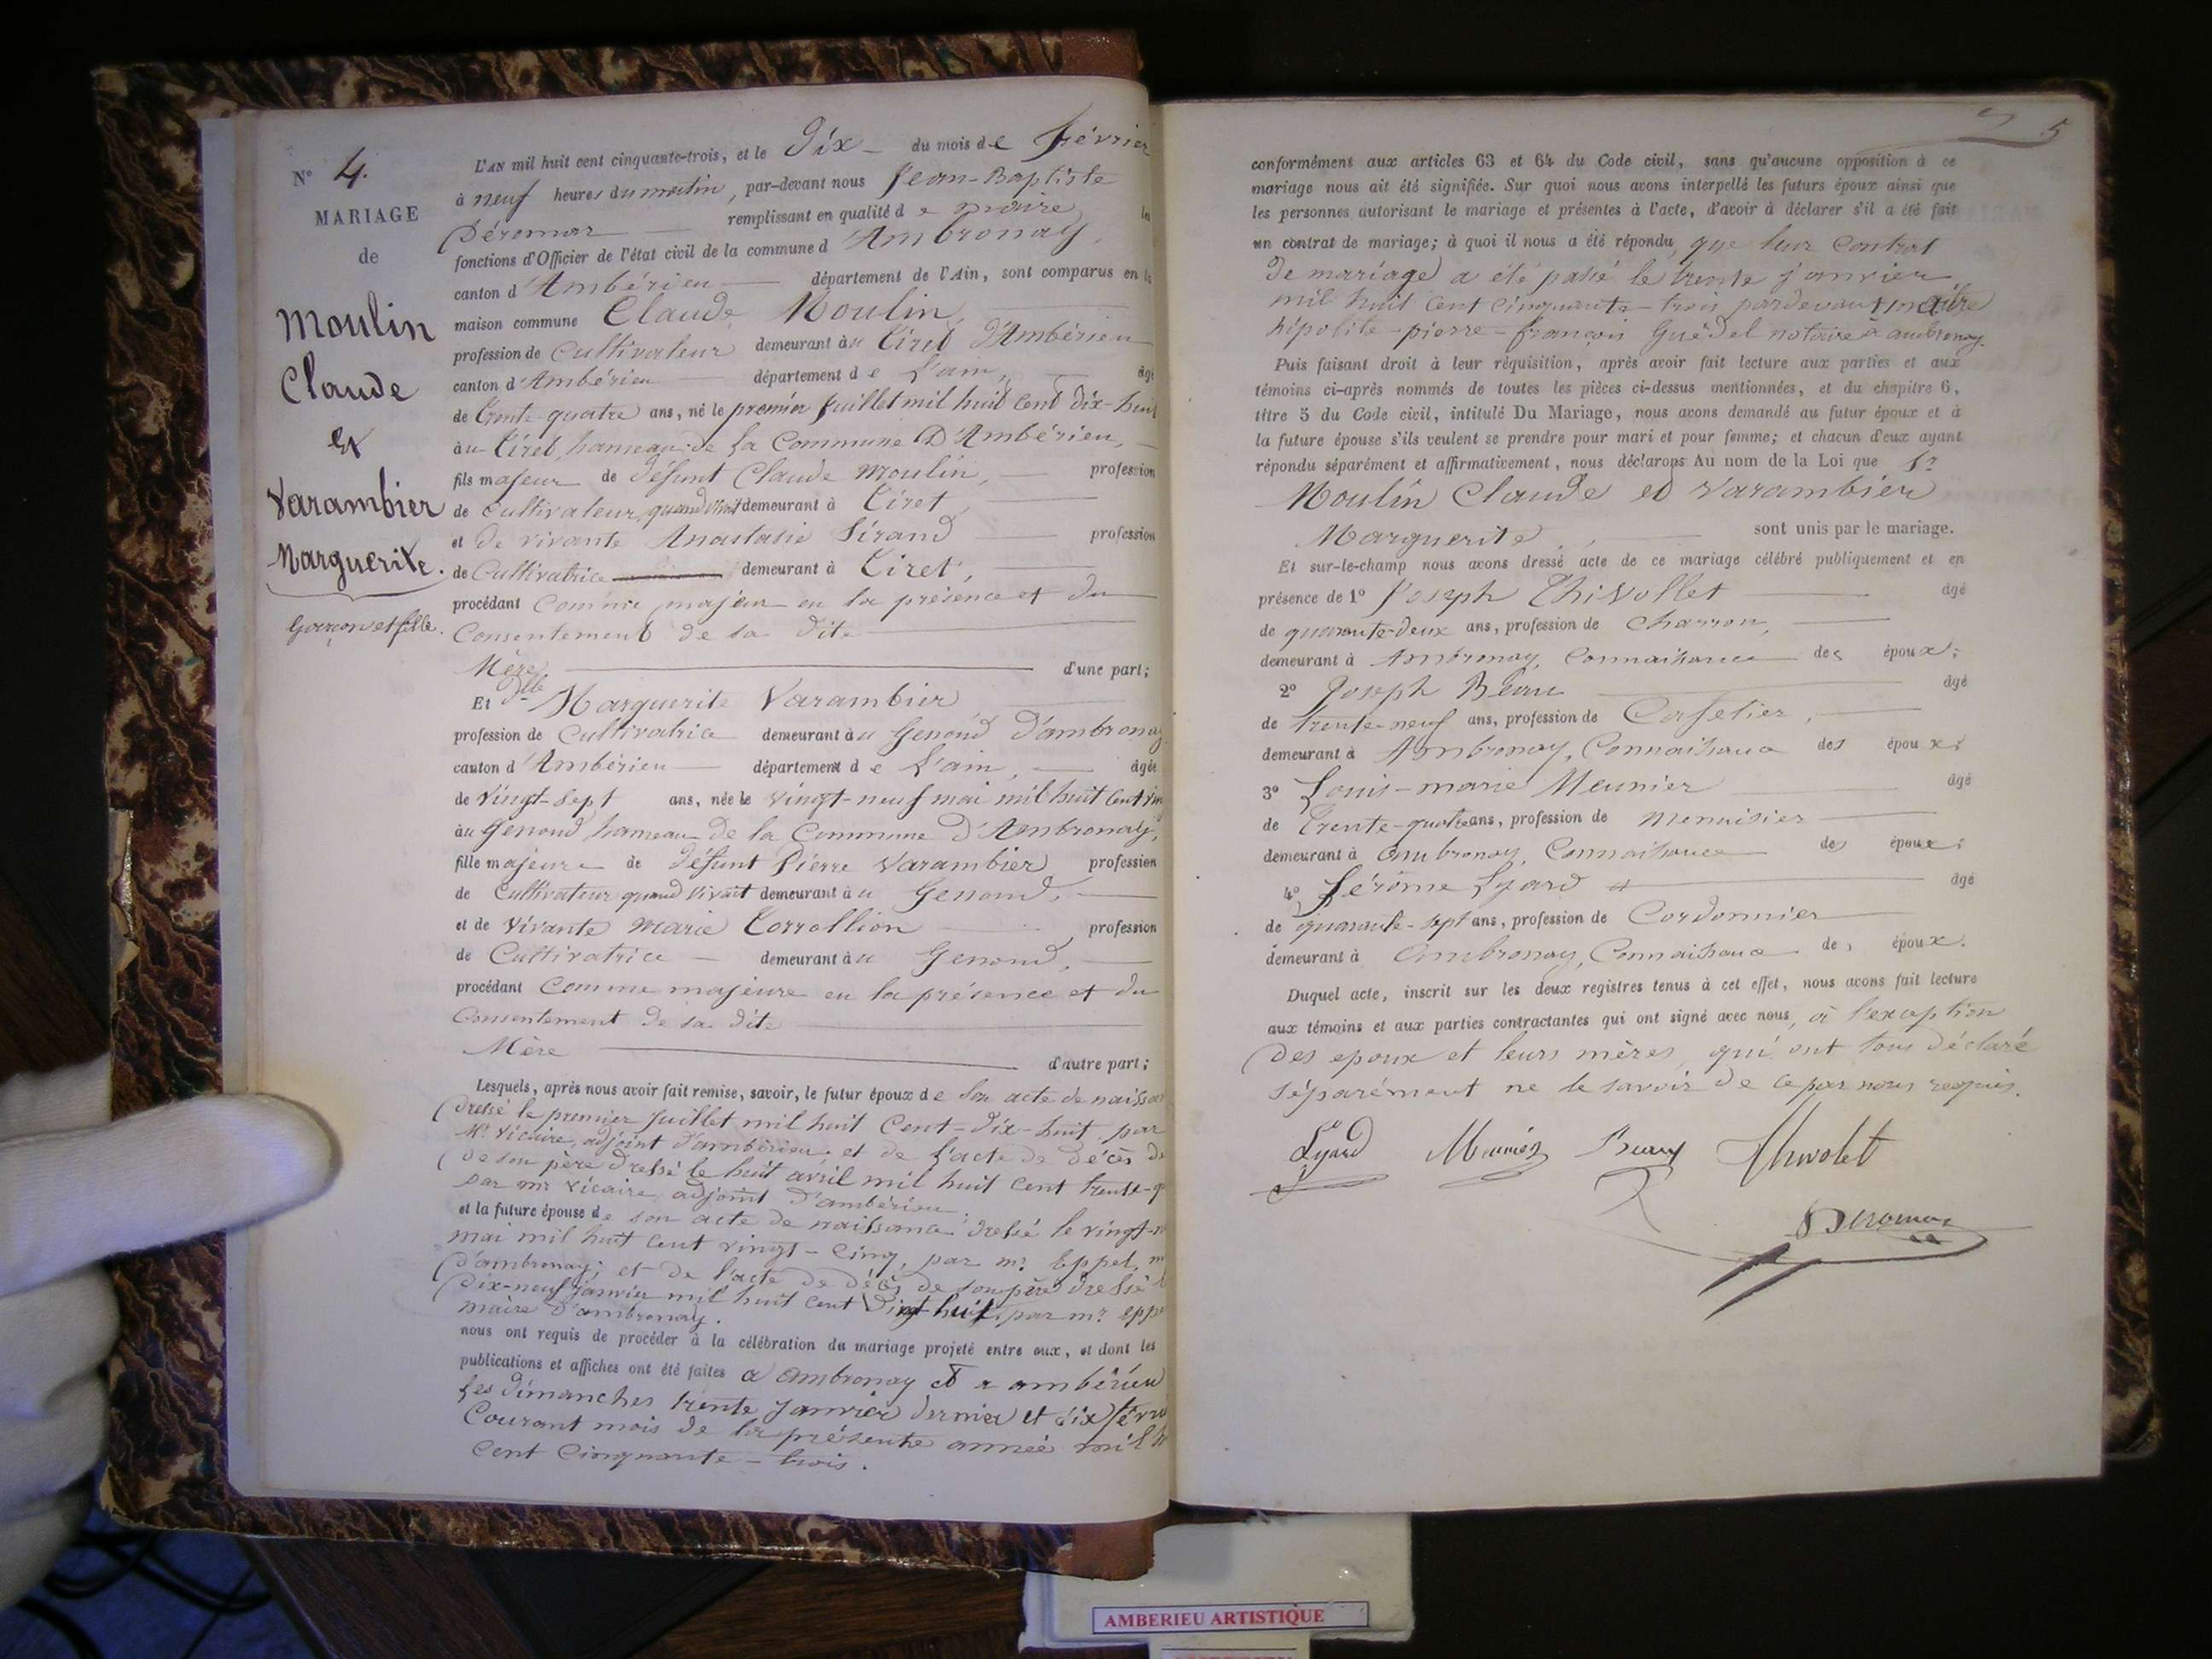 N° 4.
MARIAGE
de
Moulin
Claude
et
Varambier
Marguerite.
Garçon et fille.
L'AN mil huit cent cinquante-trois, et le Dix du mois de Février
à neuf heures du matin, par-devant nous Jean-Baptiste
Déromas remplissant en qualité de maire les
fonctions d'Officier de l'état civil de la commune d'Ambronay,
canton d'Ambérieu département de l'Ain, sont comparus en la
maison commune Claude Moulin,
profession de Cultivateur demeurant au Tiret d'Ambérieu
canton d'Ambérieu département de L'ain, âgé
de trente-quatre ans, né le premier Juillet mil huit cent dix-huit
au Tiret, hameau de la Commune D'Ambérieu,
fils majeur de défunt Claude Moulin, profession
de Cultivateur, quand vivait demeurant à Tiret,
et de vivante Anastasie Sirand profession
de Cultivatrice demeurant à Tiret,
procédant comme majeur en la présence et du
Consentement de sa dite
Mère d'une part;
Et Dlle Marguerite Varambier
profession de Cultivatrice demeurant au Genoud D'ambronay
canton d'Ambérieu département de L'ain, âgée
de Vingt-Sept ans, née le vingt-neuf mai mil huit Cent
au Genoud, hameau de la Commune d'Ambronay,
fille majeure de défunt Pierre Varambier profession
de Cultivateur quand vivait demeurant au Genoud,
et de vivante Marie Corrollion profession
de Cultivatrice demeurant au Genoud,
procédant Comme majeure en la présence et du
Consentement de sa dite
Mère d'autre part;
Lesquels, après nous avoir fait remise, savoir, le futur époux de son acte de
Dressé le premier Juillet mil huit Cent-Dix-huit par
Mr Vicaire, adjoint d'ambérieu, et de l'acte de décès de
de son père Dressé le huit avril mil huit cent
par mr Vicaire adjoint d'ambérieu.
et la future épouse de son acte de naissance Dressé le
mai mil huit cent vingt-cinq, par mr. Eppel,
d'ambronay; et de l'acte de décès de son père Dressé
Dix-neuf Janvier mil huit cent vingt huit, par mr.
maire d'ambronay.
nous ont requis de procéder à la célébration du mariage projeté entre eux, et dont les
publications et affiches ont été faites à ambronay et à ambérieu
les dimanches trente Janvier dernier et six
Courant mois de la présente année mil
cent cinquante-trois.
5
conformément aux articles 63 et 64 du Code civil, sans qu'aucune opposition à ce
mariage nous ait été signifiée. Sur quoi nous avons interpellé les futurs époux ainsi que
les personnes autorisant le mariage et présentes à l'acte, d'avoir à déclarer s'il a été fait
un contrat de mariage; à quoi il nous a été répondu, que leur Contrat
de mariage a été passé le trente janvier
mil huit cent cinquante-trois pardevant maître
hipolite-pierre-françois Guédel notaire à ambronay.
Puis faisant droit à leur réquisition, après avoir fait lecture aux parties et aux
témoins ci-après nommés de toutes les pièces ci-dessus mentionnées, et du chapitre 6,
titre 5 du Code civil, intitulé Du Mariage, nous avons demandé au futur époux et à
la future épouse s'ils veulent se prendre pour mari et pour femme; et chacun d'eux ayant
répondu séparément et affirmativement, nous déclarons Au nom de la Loi que Sr
Moulin Claude et Varambier
Marguerite sont unis par le mariage.
Et sur-le-champ nous avons dressé acte de ce mariage célébré publiquement et en
présence de 1° Joseph Thivollet âgé
de quarante-deux ans, profession de Charron,
demeurant à Ambronay, Connaissance des époux;
2° Joseph Beau âgé
de trente-neuf ans, profession de
demeurant à Ambronay, Connaissance des époux;
3° Louis-marie Meunier âgé
de trente-quatre ans, profession de menuisier
demeurant à ambronay, Connaissance des époux;
4° Jérôme Lyard âgé
de quarante-sept ans, profession de Cordonnier
demeurant à ambronay, Connaissance des époux.
Duquel acte, inscrit sur les deux registres tenus à cet effet, nous avons fait lecture
aux témoins et aux parties contractantes qui ont signé avec nous, à l'exception
des epoux et leurs mères, qui ont tous déclaré
séparément ne le savoir de ce par nous requis.
Lyard Meunier Beau Thivolet
Déromas
AMBERIEU ARTISTIQUE